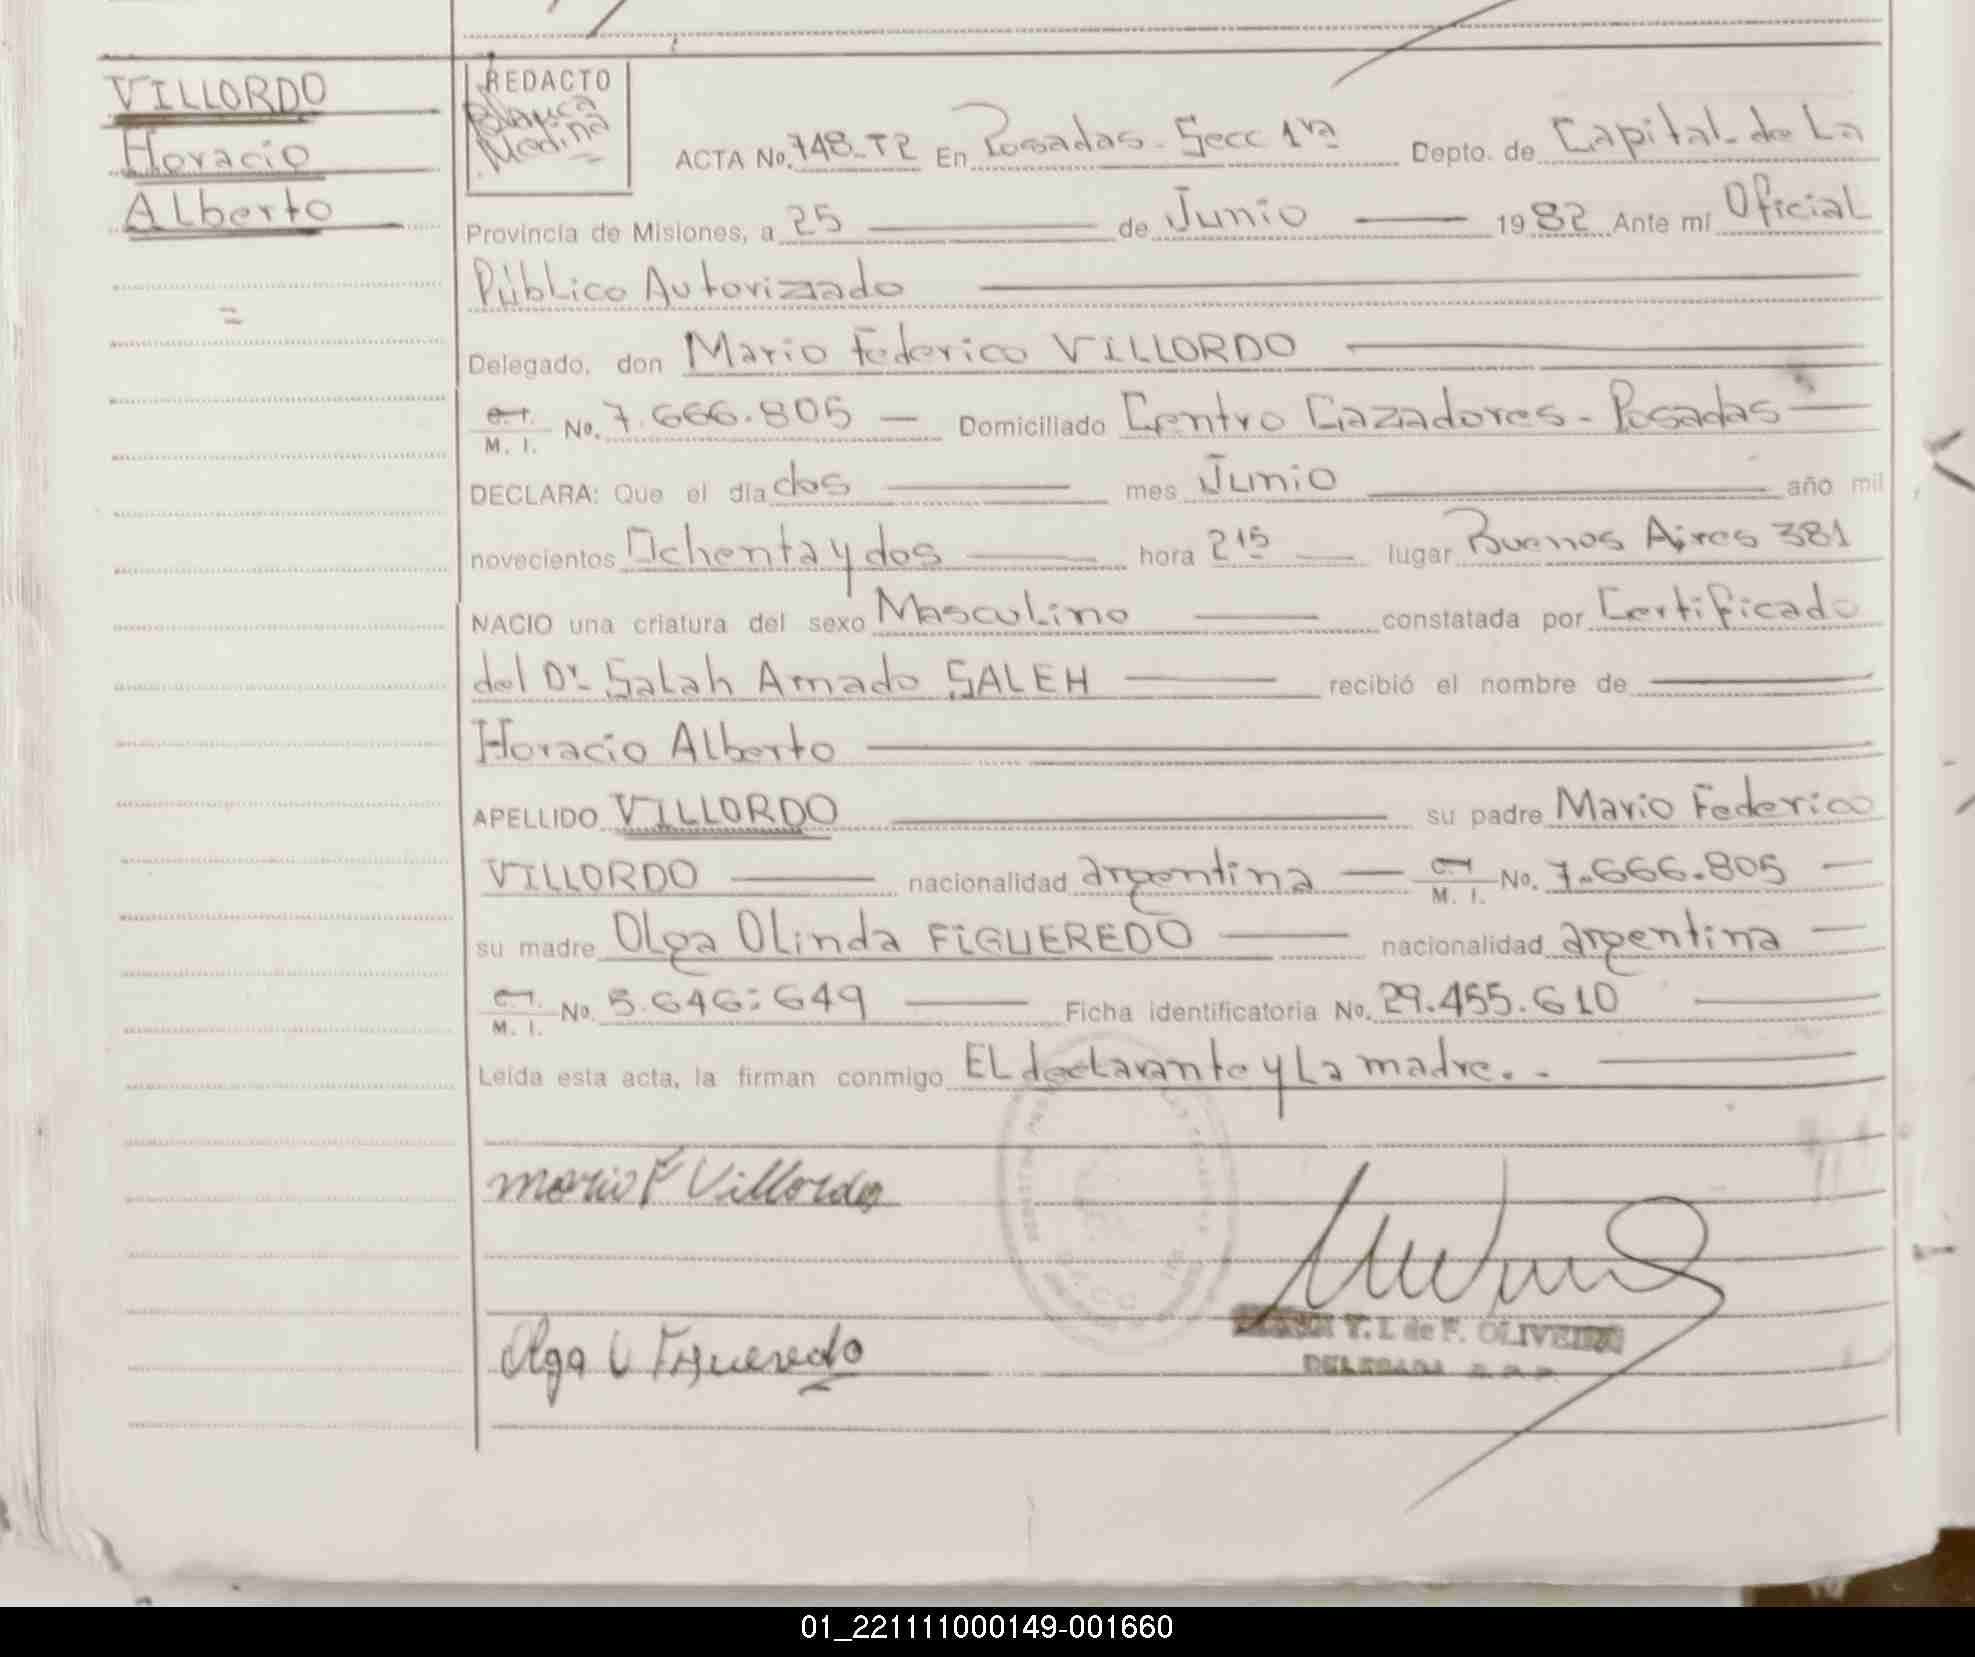 VILLORDO
Horacio
Alberto
REDACTO
Blanca
Medina
ACTA No. 748-T2 En Posadas - Secc 1ra Depto. de Capital - de La
Provincia de Misiones, a 25 de Junio 1982 Ante mí Oficial
Público Autorizado
Delegado, don Mario Federico VILLORDO
C.I.
M. I. No. 7.666.805 Domiciliado Centro Cazadores - Posadas
DECLARA: Que el día dos mes Junio año mil
novecientos Ochenta y dos hora 2 15 lugar Buenos Aires 381
NACIO una criatura del sexo Masculino constatada por Certificado
del Dr. Salah Amado SALEH recibió el nombre de
Horacio Alberto
APELLIDO VILLORDO su padre Mario Federico
VILLORDO nacionalidad argentina C.I. M. I. No. 7.666.805
su madre Olga Olinda FIGUEREDO nacionalidad argentina
C.I.
M. I. No. 5.646:649 Ficha identificatoria No. 29.455.610
Leída esta acta, la firman conmigo El declarante y La madre. . -
Mario F Villordo
Olga O Figueredo
Y. I. de F. OLIVEIRA
DELEGADA
01_221111000149-001660